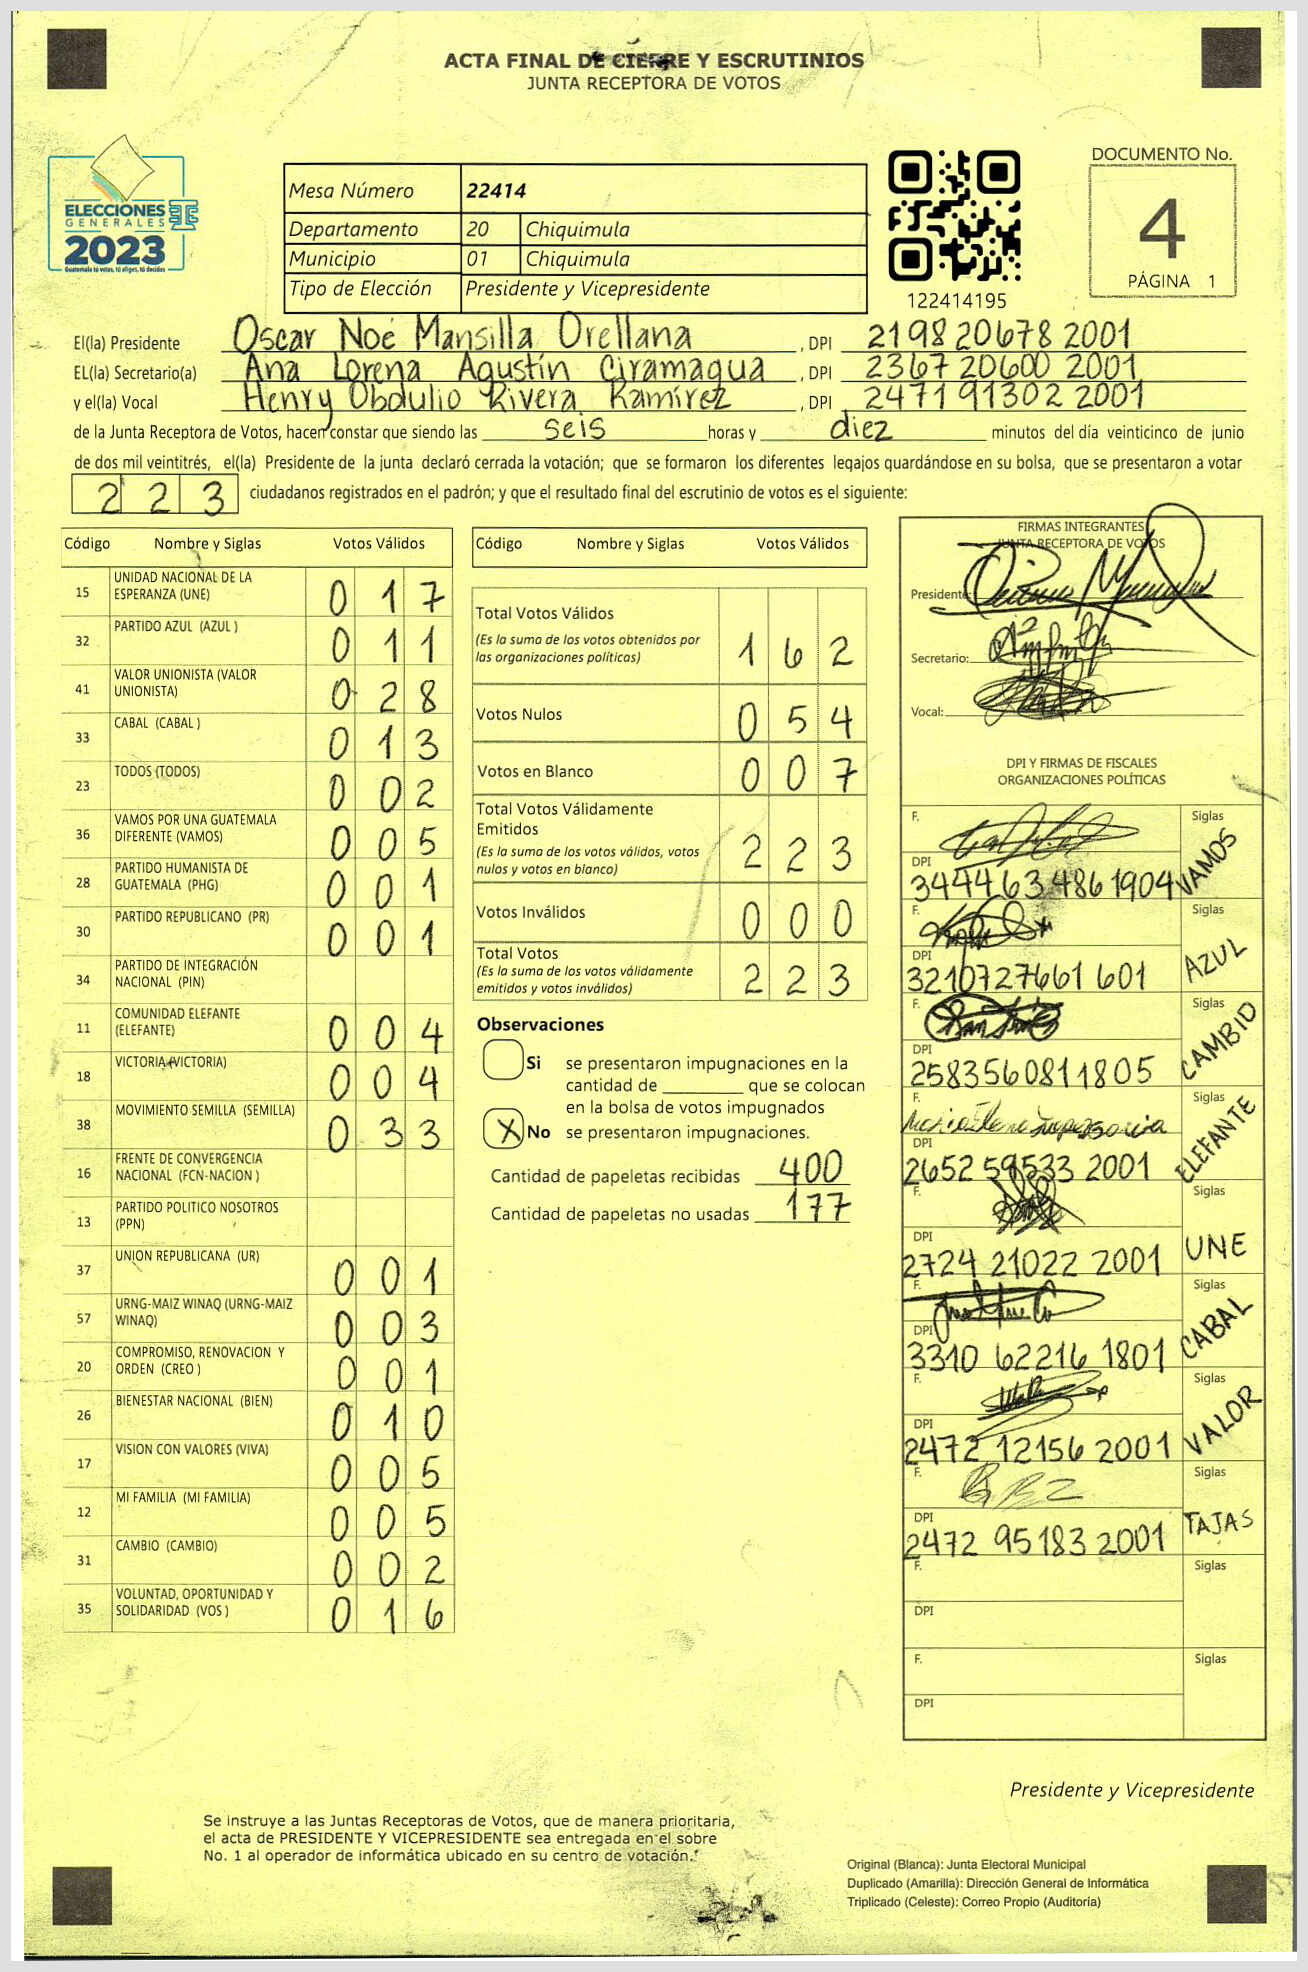 ACTA FINAL DE CIERRE Y ESCRUTINIOS
JUNTA RECEPTORA DE VOTOS
ELECCIONES
GENERALES
2023
Guatemala tú votas, tú eliges, tú decides
Mesa Número 22414
Departamento 20 Chiquimula
Municipio 01 Chiquimula
Tipo de Elección Presidente y Vicepresidente
122414195
DOCUMENTO No.
4
PÁGINA 1
El(la) Presidente Oscar Noé Mansilla Orellana , DPI 2198 20678 2001
EL(la) Secretario(a) Ana Lorena Agustín Ciramagua , DPI 2367 20600 2001
y el(la) Vocal Henry Obdulio Rivera Ramírez , DPI 2471 91302 2001
de la Junta Receptora de Votos, hacen constar que siendo las seis horas y diez minutos del día veinticinco de junio
de dos mil veintitrés, el(la) Presidente de la junta declaró cerrada la votación; que se formaron los diferentes legajos guardándose en su bolsa, que se presentaron a votar
223 ciudadanos registrados en el padrón; y que el resultado final del escrutinio de votos es el siguiente:
Código Nombre y Siglas Votos Válidos
15 UNIDAD NACIONAL DE LA ESPERANZA (UNE) 0 1 7
32 PARTIDO AZUL (AZUL ) 0 1 1
41 VALOR UNIONISTA (VALOR UNIONISTA) 0 2 8
33 CABAL (CABAL ) 0 1 3
23 TODOS (TODOS) 0 0 2
36 VAMOS POR UNA GUATEMALA DIFERENTE (VAMOS) 0 0 5
28 PARTIDO HUMANISTA DE GUATEMALA (PHG) 0 0 1
30 PARTIDO REPUBLICANO (PR) 0 0 1
34 PARTIDO DE INTEGRACIÓN NACIONAL (PIN)
11 COMUNIDAD ELEFANTE (ELEFANTE) 0 0 4
18 VICTORIA (VICTORIA) 0 0 4
38 MOVIMIENTO SEMILLA (SEMILLA) 0 3 3
16 FRENTE DE CONVERGENCIA NACIONAL (FCN-NACION )
13 PARTIDO POLITICO NOSOTROS (PPN)
37 UNION REPUBLICANA (UR) 0 0 1
57 URNG-MAIZ WINAQ (URNG-MAIZ WINAQ) 0 0 3
20 COMPROMISO, RENOVACION Y ORDEN (CREO ) 0 0 1
26 BIENESTAR NACIONAL (BIEN) 0 1 0
17 VISION CON VALORES (VIVA) 0 0 5
12 MI FAMILIA (MI FAMILIA) 0 0 5
31 CAMBIO (CAMBIO) 0 0 2
35 VOLUNTAD, OPORTUNIDAD Y SOLIDARIDAD (VOS ) 0 1 6
Código Nombre y Siglas Votos Válidos
Total Votos Válidos
(Es la suma de los votos obtenidos por las organizaciones políticas) 1 6 2
Votos Nulos 0 5 4
Votos en Blanco 0 0 7
Total Votos Válidamente Emitidos
(Es la suma de los votos válidos, votos nulos y votos en blanco) 2 2 3
Votos Inválidos 0 0 0
Total Votos
(Es la suma de los votos válidamente emitidos y votos inválidos) 2 2 3
Observaciones
Si se presentaron impugnaciones en la
cantidad de ________ que se colocan
en la bolsa de votos impugnados
X No se presentaron impugnaciones.
Cantidad de papeletas recibidas 400
Cantidad de papeletas no usadas 177
FIRMAS INTEGRANTES
JUNTA RECEPTORA DE VOTOS
Presidente:
Secretario:
Vocal:
DPI Y FIRMAS DE FISCALES
ORGANIZACIONES POLÍTICAS
F. Siglas
DPI 3444 63486 1904 VAMOS
F. Siglas
DPI 3210727661 601 AZUL
F. Siglas
DPI 2583560811805 CAMBIO
F. Siglas
DPI 2652 59533 2001 ELEFANTE
F. Siglas
DPI 2724 21022 2001 UNE
F. Siglas
DPI 3310 62216 1801 CABAL
F. Siglas
DPI 2472 12156 2001 VALOR
F. Siglas
DPI 2472 95183 2001 TAJAS
F. Siglas
DPI
F. Siglas
DPI
Presidente y Vicepresidente
Se instruye a las Juntas Receptoras de Votos, que de manera prioritaria,
el acta de PRESIDENTE Y VICEPRESIDENTE sea entregada en el sobre
No. 1 al operador de informática ubicado en su centro de votación.
Original (Blanca): Junta Electoral Municipal
Duplicado (Amarilla): Dirección General de Informática
Triplicado (Celeste): Correo Propio (Auditoría)